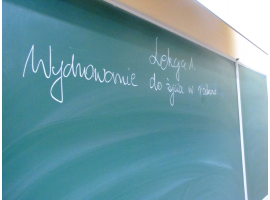 Lekcja 1.
Wychowanie do życia w rodzinie